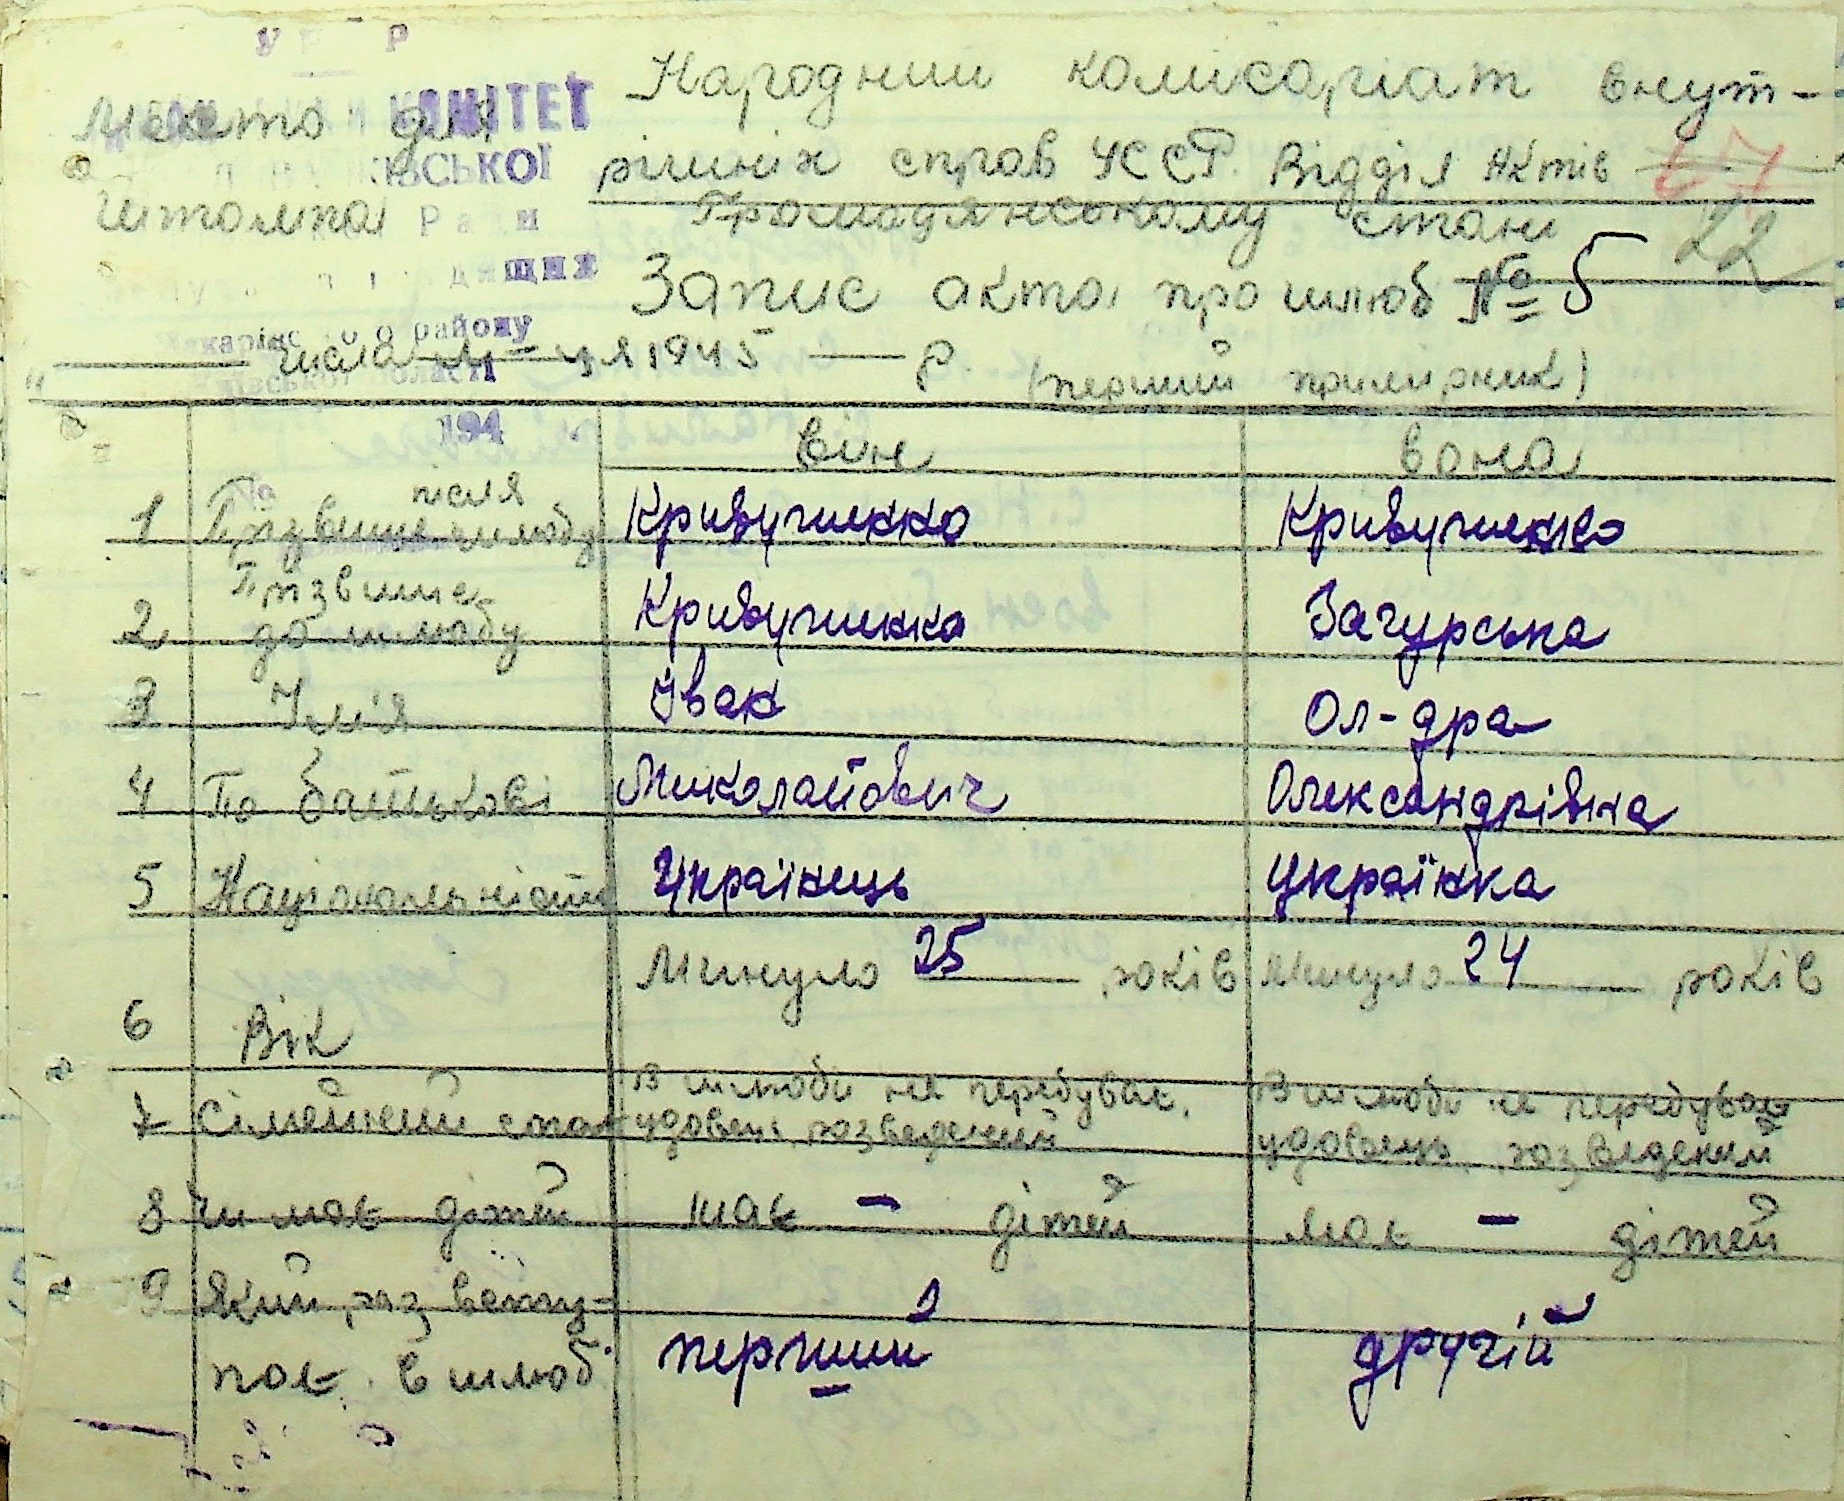 У Р
КОМІТЕТ
Місто для
ІВСЬКОЇ
штампа
Ради
дящих
району
області
194
Народний комісаріат внут-
рішніх справ УССР. Відділ Актів
Громадянському стані
17
22
Запис акта про шлюб № 5
числа м-ця 1945 р.
(перший примірник)
він вона
1 Прізвище після шлюбу Кривучиенко Кривучиенко
2 Прізвище до шлюбу Кривучиенко Загурська
3 Ім'я Іван Ол-дра
4 По батькові Миколайович Олександрівна
5 Національність Українець Українка
6 Вік Минуло 25 років Минуло 24 років
7 Сімейний стан В шлюбі не перебуває, В шлюбі не перебуває
удовець, розведений удовець, розведений
8 Чи має дітей має - дітей має - дітей
9 Який раз всту-
пає в шлюб перший другій